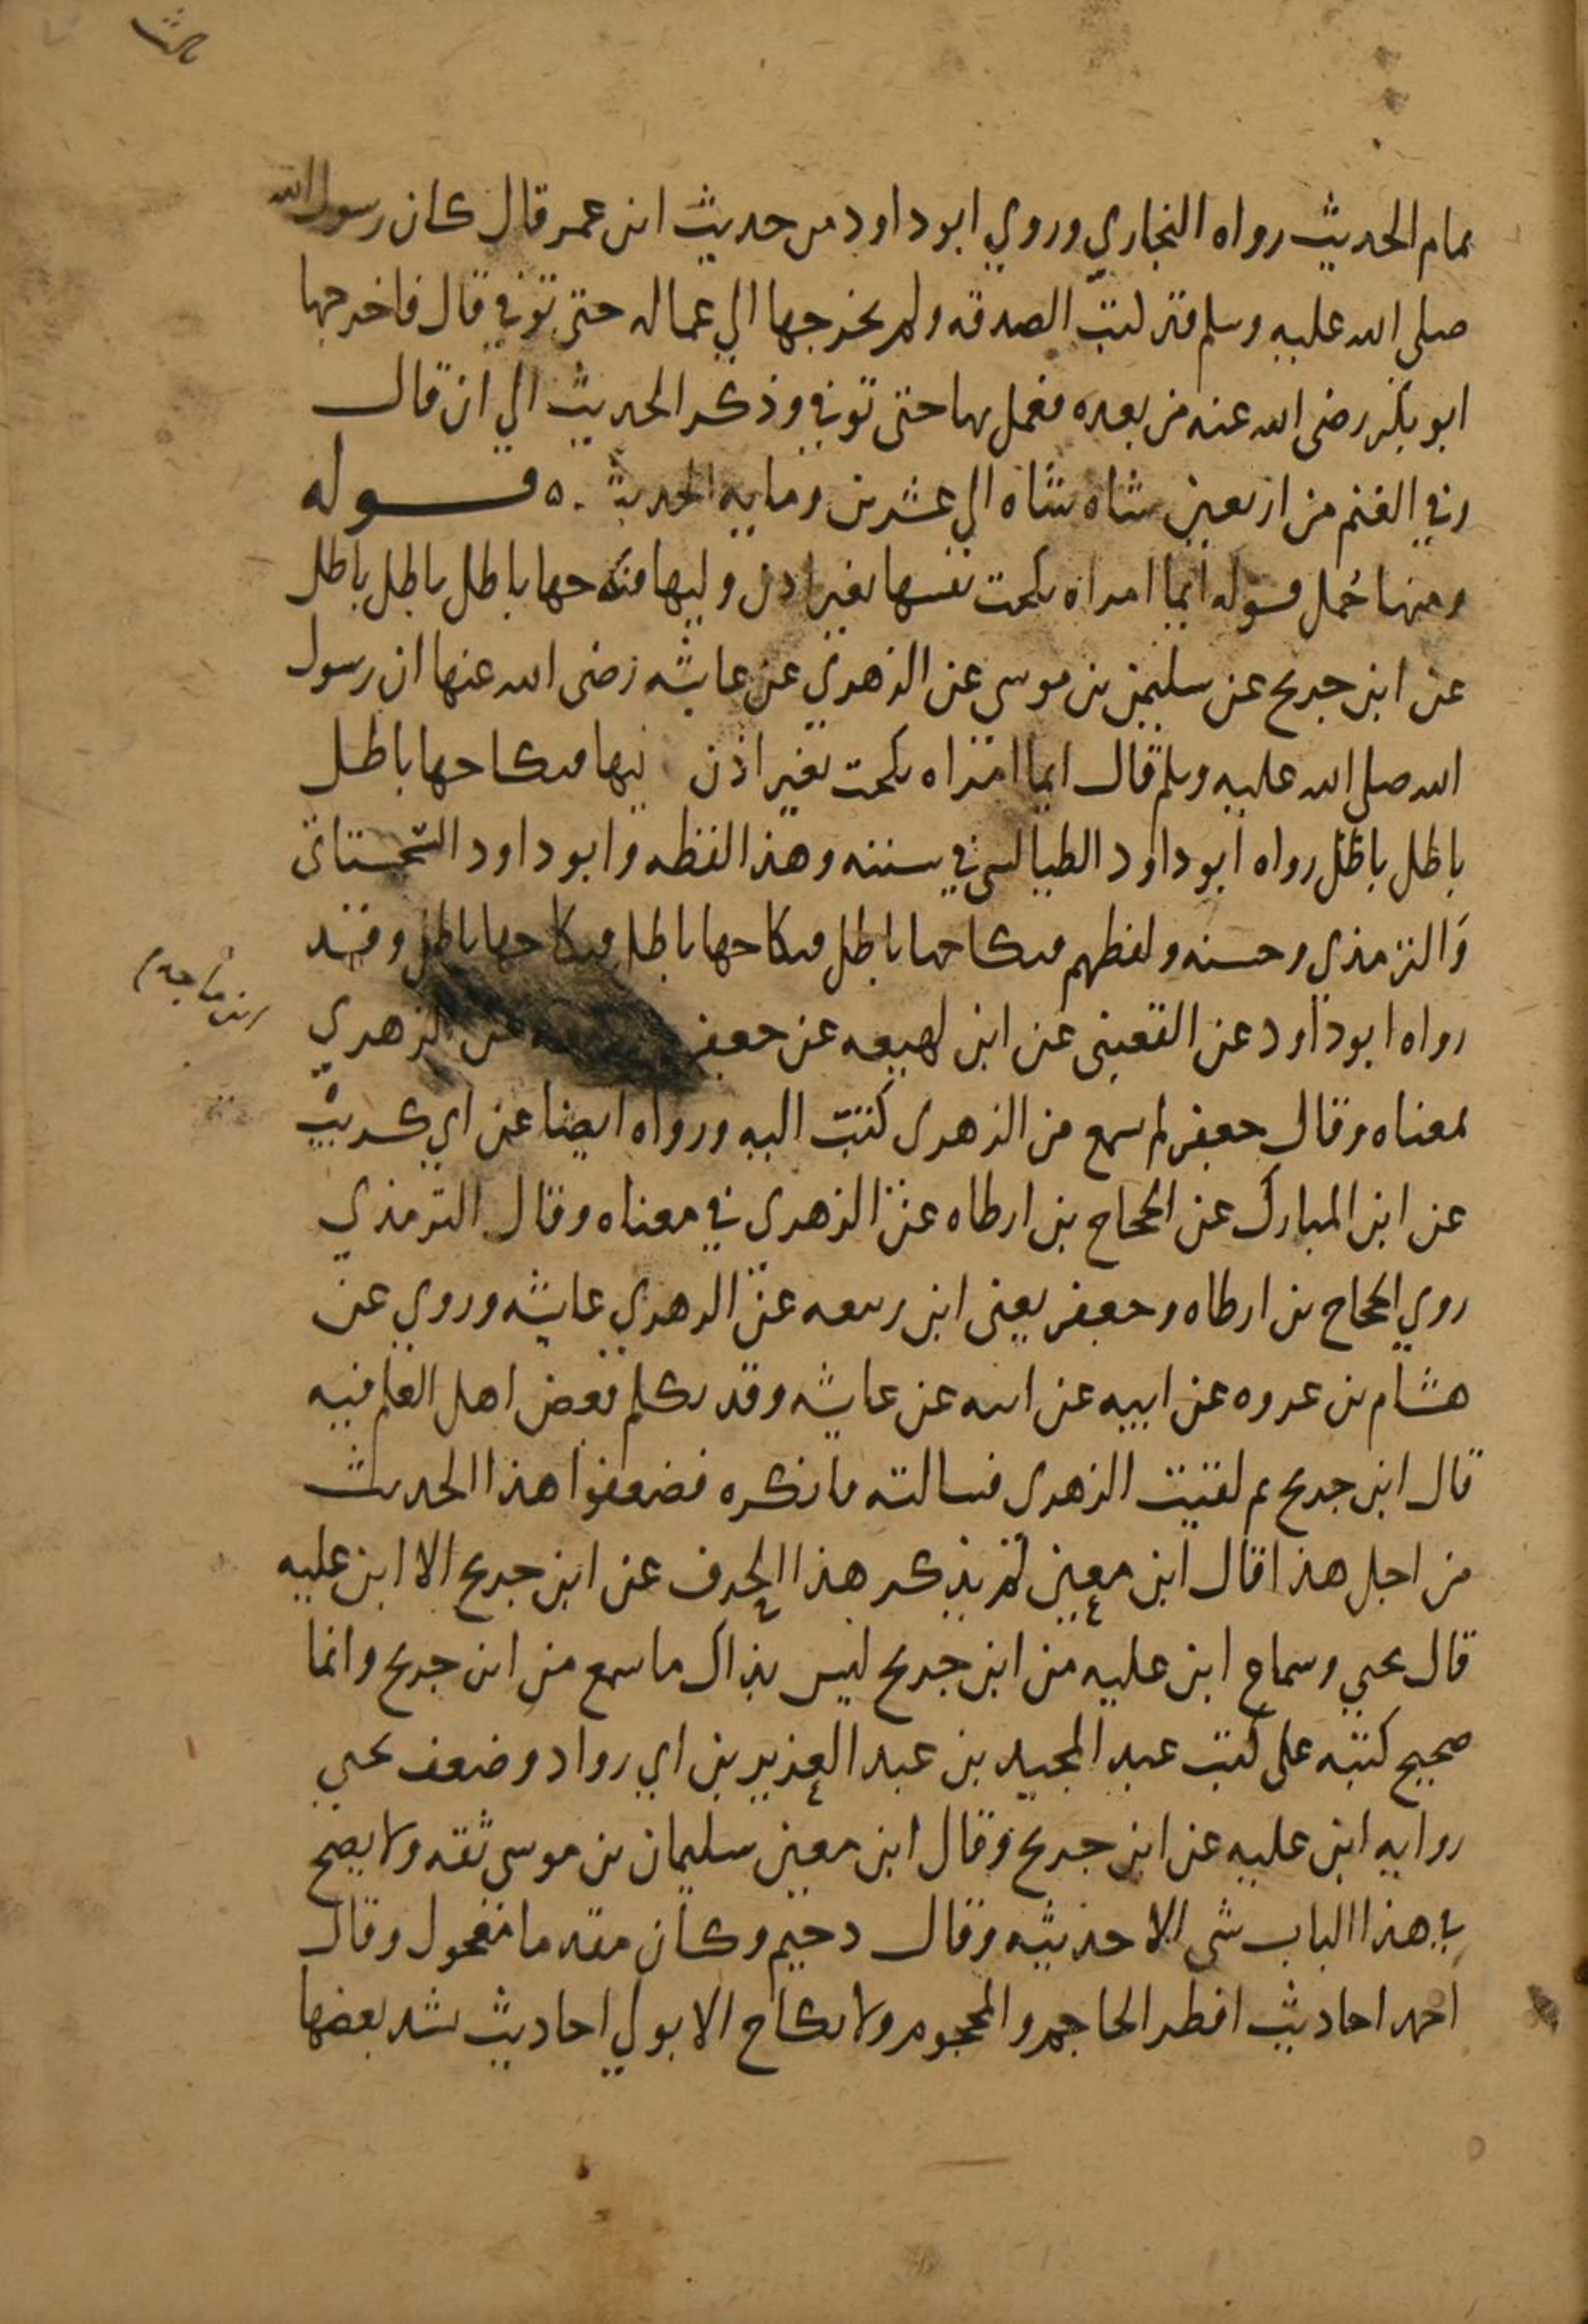 ثالث
تمام الحديث رواه البخاري وروي ابو داود من حديث ابن عمر قال كان رسول الله
صلى الله عليه وسلم قد كتب الصدقه ولم يخرجها الي عماله حتى توفي قال فاخرجها
ابو بكر رضى الله عنه من بعده فعمل بها حتى توفي وذكر الحديث الي ان قال
وفي الغنم من اربعين شاه شاه الي عشرين ومايه الحديث ٥ قوله
ومنها حُمل قوله ايما امراه نكحت نفسها بغير اذن وليها فنكاحها باطل باطل باطل
عن ابن جريج عن سليمن بن موسى عن الزهري عن عايشه رضى الله عنها ان رسول
الله صلى الله عليه وسلم قال ايما امراه نكحت بغير اذن ليها فنكاحها باطل
باطل باطل رواه ابو داود الطيالسي في سننه وهذا لفظه وابو داود السجستاني
والترمذي وحسنه ولفظهم فنكاحها باطل فنكاحها باطل فنكاحها باطل وقد
ابن ماجه
رواه ابو داود عن القعنبى عن ابن لهيعه عن جعفر عن الزهري
بمعناه وقال جعفر لم يسمع من الزهري كتب اليه ورواه ايضا عن ابي كريب
عن ابن المبارك عن الحجاج بن ارطاه عن الزهري في معناه وقال الترمذي
روي الحجاج بن ارطاه وجعفر يعني ابن ربيعه عن الزهري عايشه وروي عن
هشام بن عروه عن ابيه عن ابيه عن عايشه وقد تكلم بعض اهل العلم فيه
قال ابن جريج ثم لقيت الزهري فسالته فانكره فضعفوا هذا الحديث
من اجل هذا قال ابن معين لم يذكر هذا الحرف عن ابن جريج الا ابن عليه
قال يحيي وسماع ابن عليه من ابن جريج ليس بذاك ما سمع من ابن جريج وانما
صحيح كتبه على كتب عبد المجيد بن عبد العزيز بن ابي رواد وضعف يحيي
روايه ابن عليه عن ابن جريج وقال ابن معين سليمان بن موسى ثقه ولا يصح
في هذا الباب شي الا حديثه وقال دحيم وكان مقدما مفحول وقال
احمد احاديث افطر الحاجم والمحجوم ولا نكاح الا بولي احاديث يشد بعضها